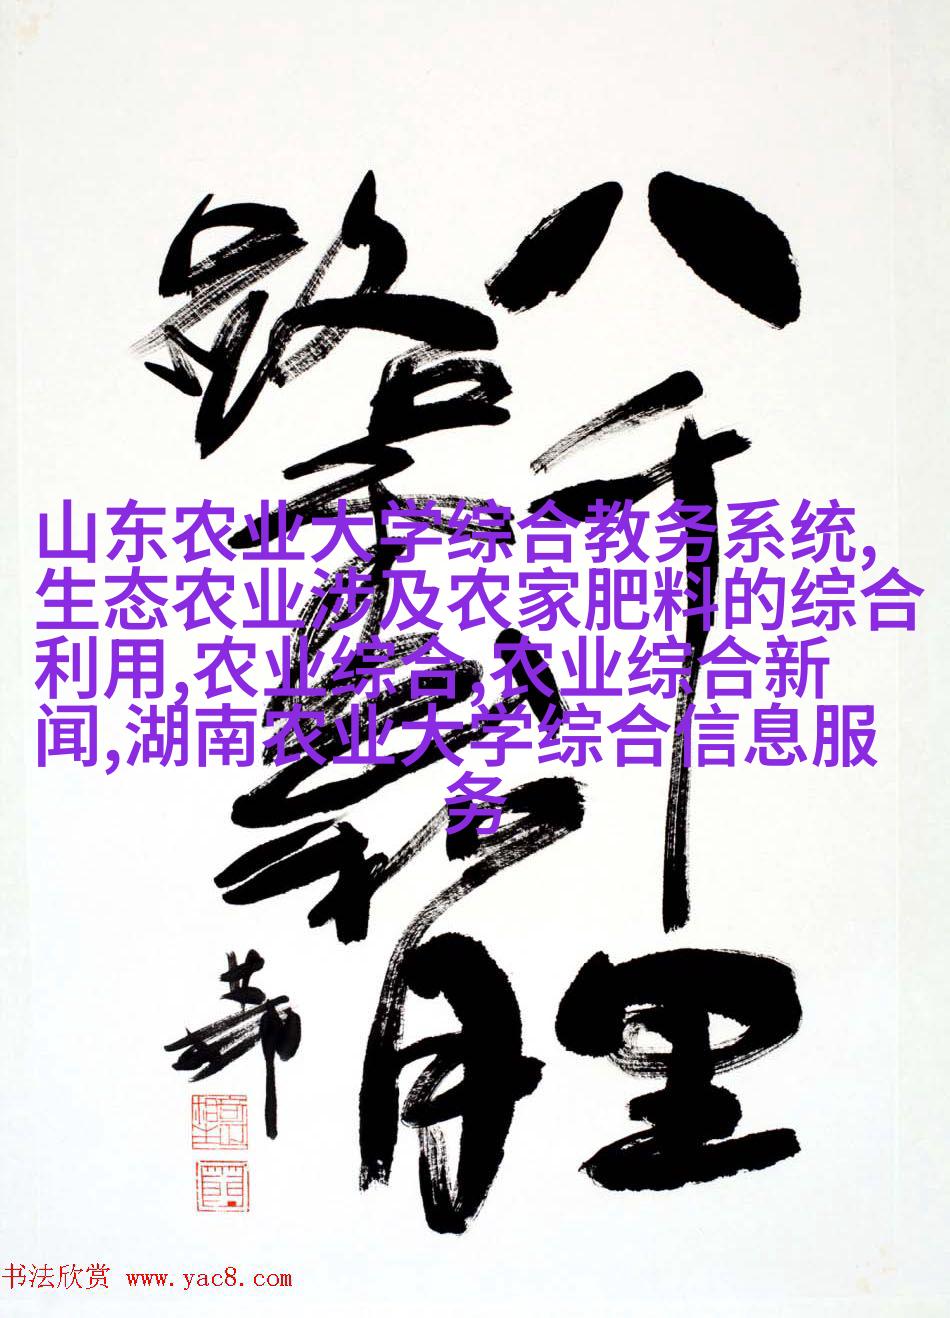 八千里
路云和月
山东农业大学综合教务系统,
生态农业涉及农家肥料的综合
利用,农业综合,农业综合新
闻,湖南农业大学综合信息服
务
书法欣赏 www.yac8.com